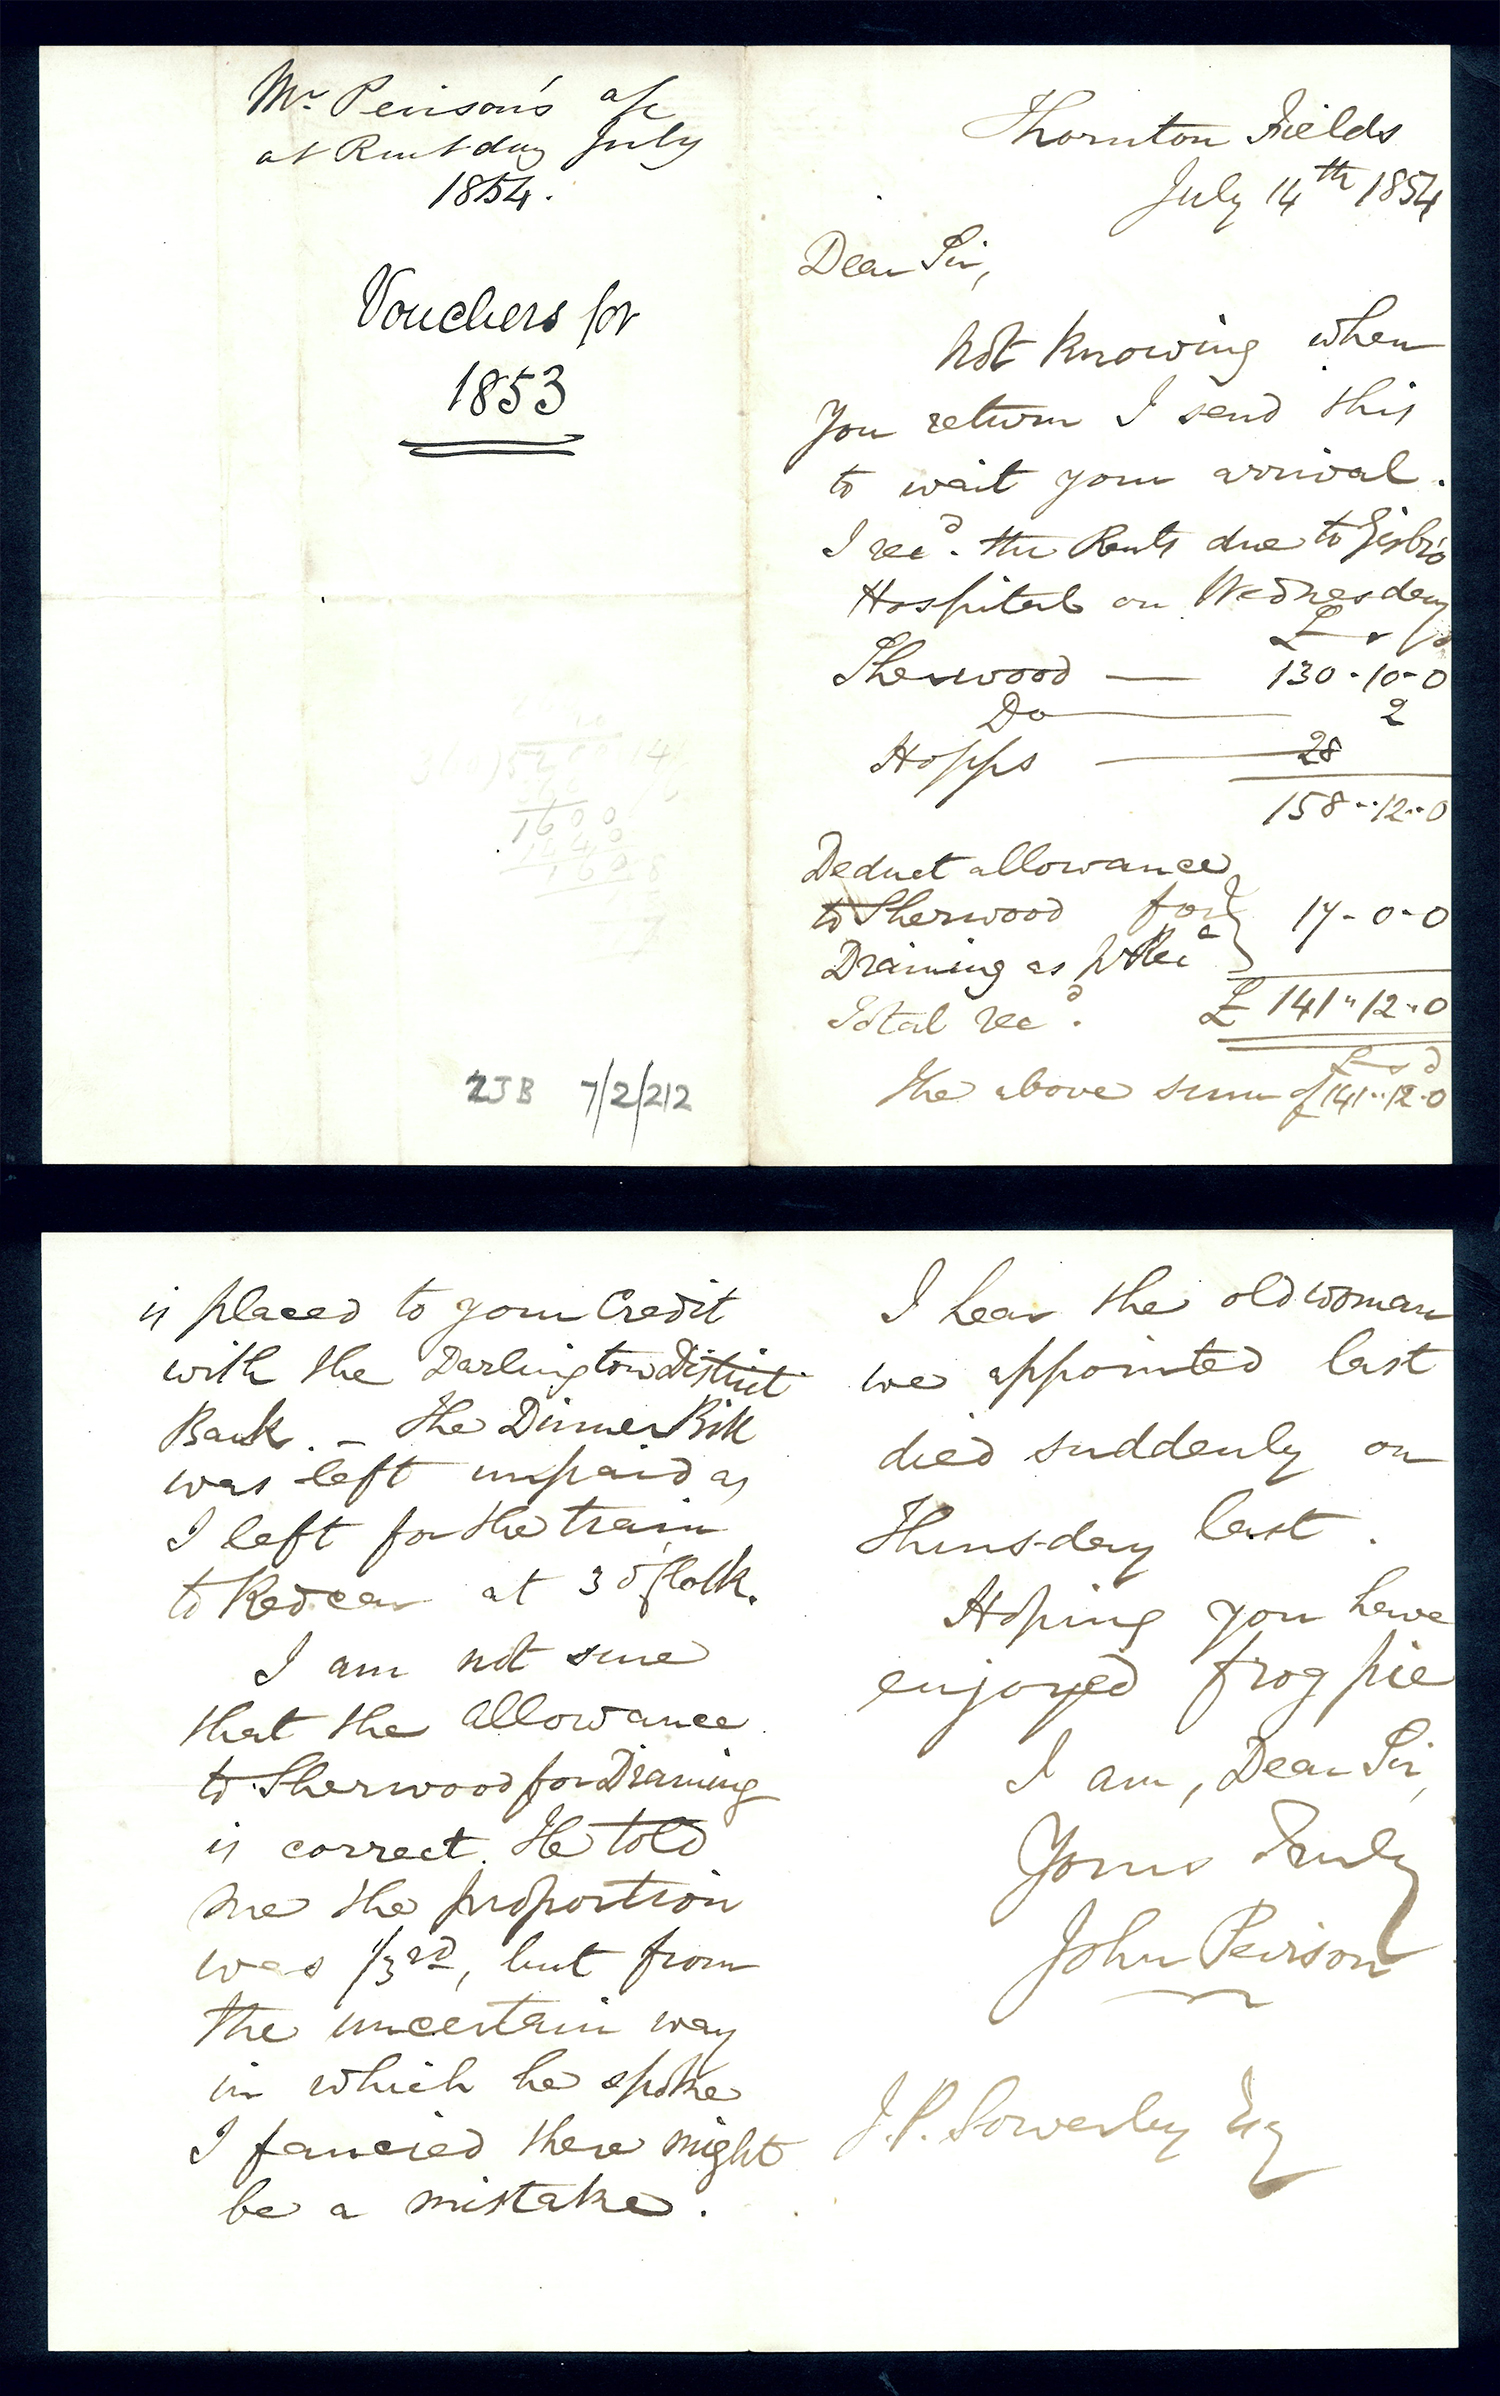 Mr Peirson's a/c
at Rent day July
1854.
Vouchers for
1853
360)5200(14
360
1600
1440
160
2JB 7/2/212
Thornton Fields
July 14th 1854
Dear Sir,
Not knowing when
you return I send this
to wait your arrival.
I recd. the Rents due to Gisbro
Hospital on Wednesday
£ s d
Sherwood — 130-10-0
Do — 2
Hopps — 28
158..12..0
Deduct allowance
to Sherwood for } 17-0-0
Draining as
Total recd. £ 141"12"0
£ s d
The above sum of 141..12.0
is placed to your Credit
with the Darlington District
Bank. — The Dinner Bill
was left unpaid as
I left for the train
to Redcar at 3 o'Clock.
I am not sure
that the allowance
to Sherwood for Draining
is correct. He told
me the proportion
was 1/3rd, but from
the uncertain way
in which he spoke
I fancied there might
be a mistake.
I hear the old woman
we appointed last
died suddenly on
Thursday last.
Hoping you have
enjoyed frog pie
I am, Dear Sir,
Yours Truly
John Peirson
J.P. Sowerby Esq